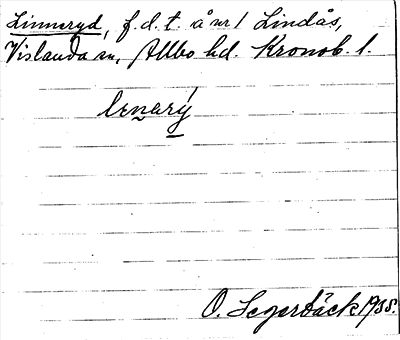 Linneryd, f.d.t. å nr 1 Lindås,
Vislanda sn, Allbo hd. Kronob. l.
lenerý
O. Segerbäck 1935.